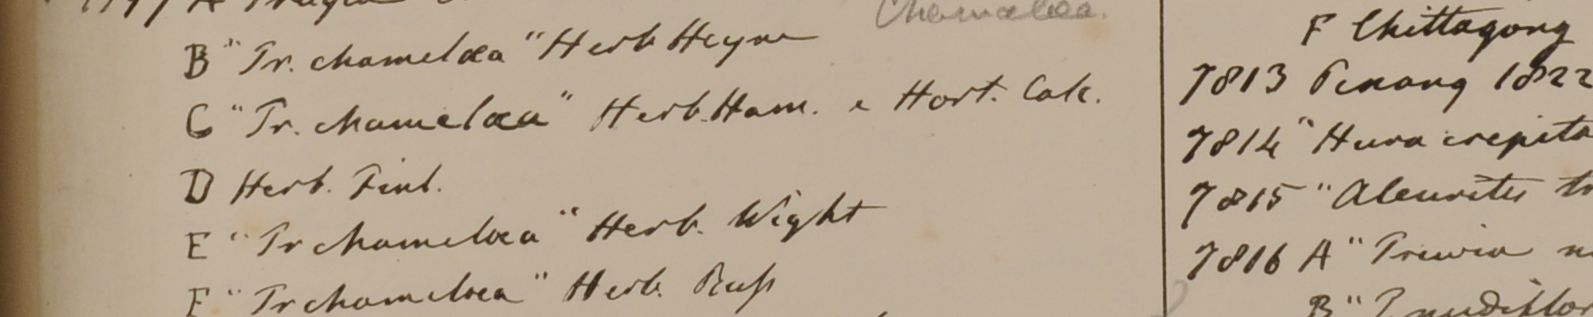 Chamelaea.
B "Tr. chamelæa" Herb Heyne
C "Tr. chamelæa" Herb. Ham. e Hort. Calc.
D Herb. Finl.
E "Tr chamelæa" Herb. Wight
F "Tr chamelæa" Herb. Russ
F Chittagong
7813 Penang 1822
7814 "Hura crepita
7815 "Aleurites
7816 A "Trewia n
B "T. nudiflor